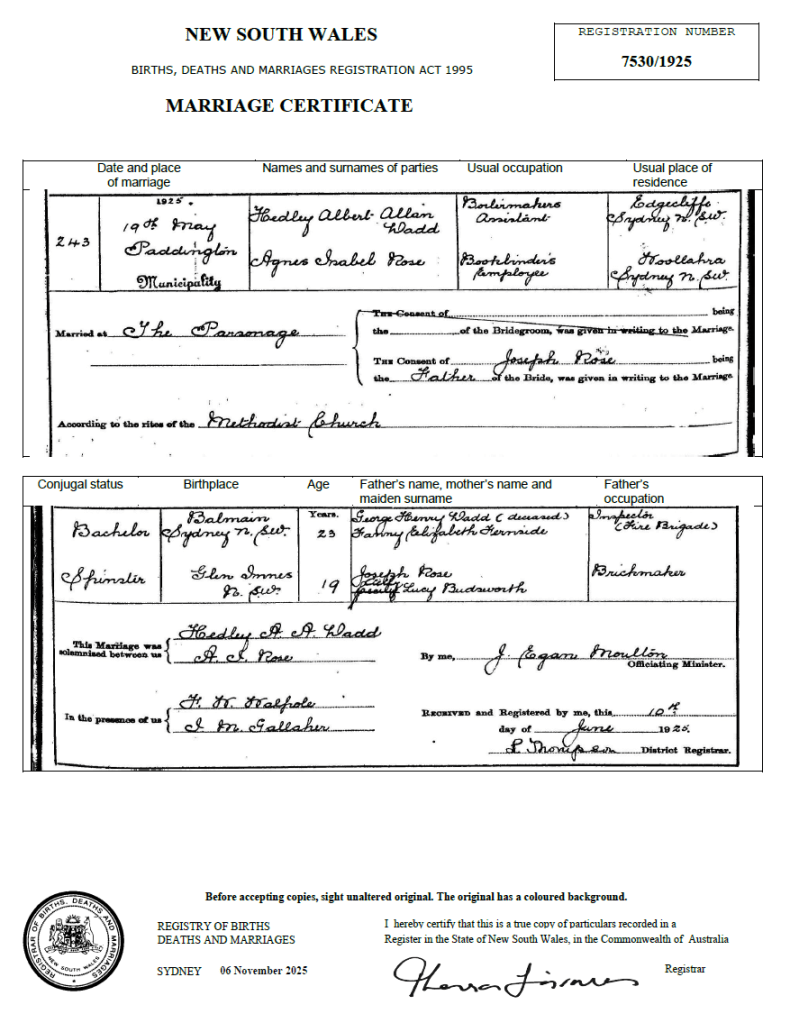 NEW SOUTH WALES
REGISTRATION NUMBER
7530/1925
BIRTHS, DEATHS AND MARRIAGES REGISTRATION ACT 1995
MARRIAGE CERTIFICATE
Date and place of marriage
Names and surnames of parties
Usual occupation
Usual place of residence
243
1925.
19th May
Paddington
Municipality
Hedley Albert Allan
Wadd
Agnes Isabel Rose
Boilermakers
Assistant
Bookbinder's
Employee
Edgecliffe
Sydney N.S.W.
Woollahra
Sydney N.S.W.
Married at The Parsonage
THE Consent of being
the of the Bridegroom, was given in writing to the Marriage.
THE Consent of Joseph Rose being
the Father of the Bride, was given in writing to the Marriage.
According to the rites of the Methodist Church
Conjugal status
Birthplace
Age
Father's name, mother's name and maiden surname
Father's occupation
Bachelor
Balmain
Sydney N.S.W.
Years.
23
George Henry Wadd (deceased)
Fanny Elizabeth Fernside
Inspector
(Fire Brigade)
Spinster
Glen Innes
N.S.W.
19
Joseph Rose
Lucy Budsworth
Brickmaker
This Marriage was
solemnized between us
Hedley A. A. Wadd
A. I. Rose
By me, J. Egan Moulton
Officiating Minister.
In the presence of us
F. W. Walpole
I. M. Gallaher
RECEIVED and Registered by me, this 10th
day of June 1925.
L Thompson District Registrar.
Before accepting copies, sight unaltered original. The original has a coloured background.
REGISTRAR OF BIRTHS, DEATHS AND MARRIAGES
NEW SOUTH WALES
REGISTRY OF BIRTHS
DEATHS AND MARRIAGES
SYDNEY 06 November 2025
I hereby certify that this is a true copy of particulars recorded in a
Register in the State of New South Wales, in the Commonwealth of Australia
Registrar